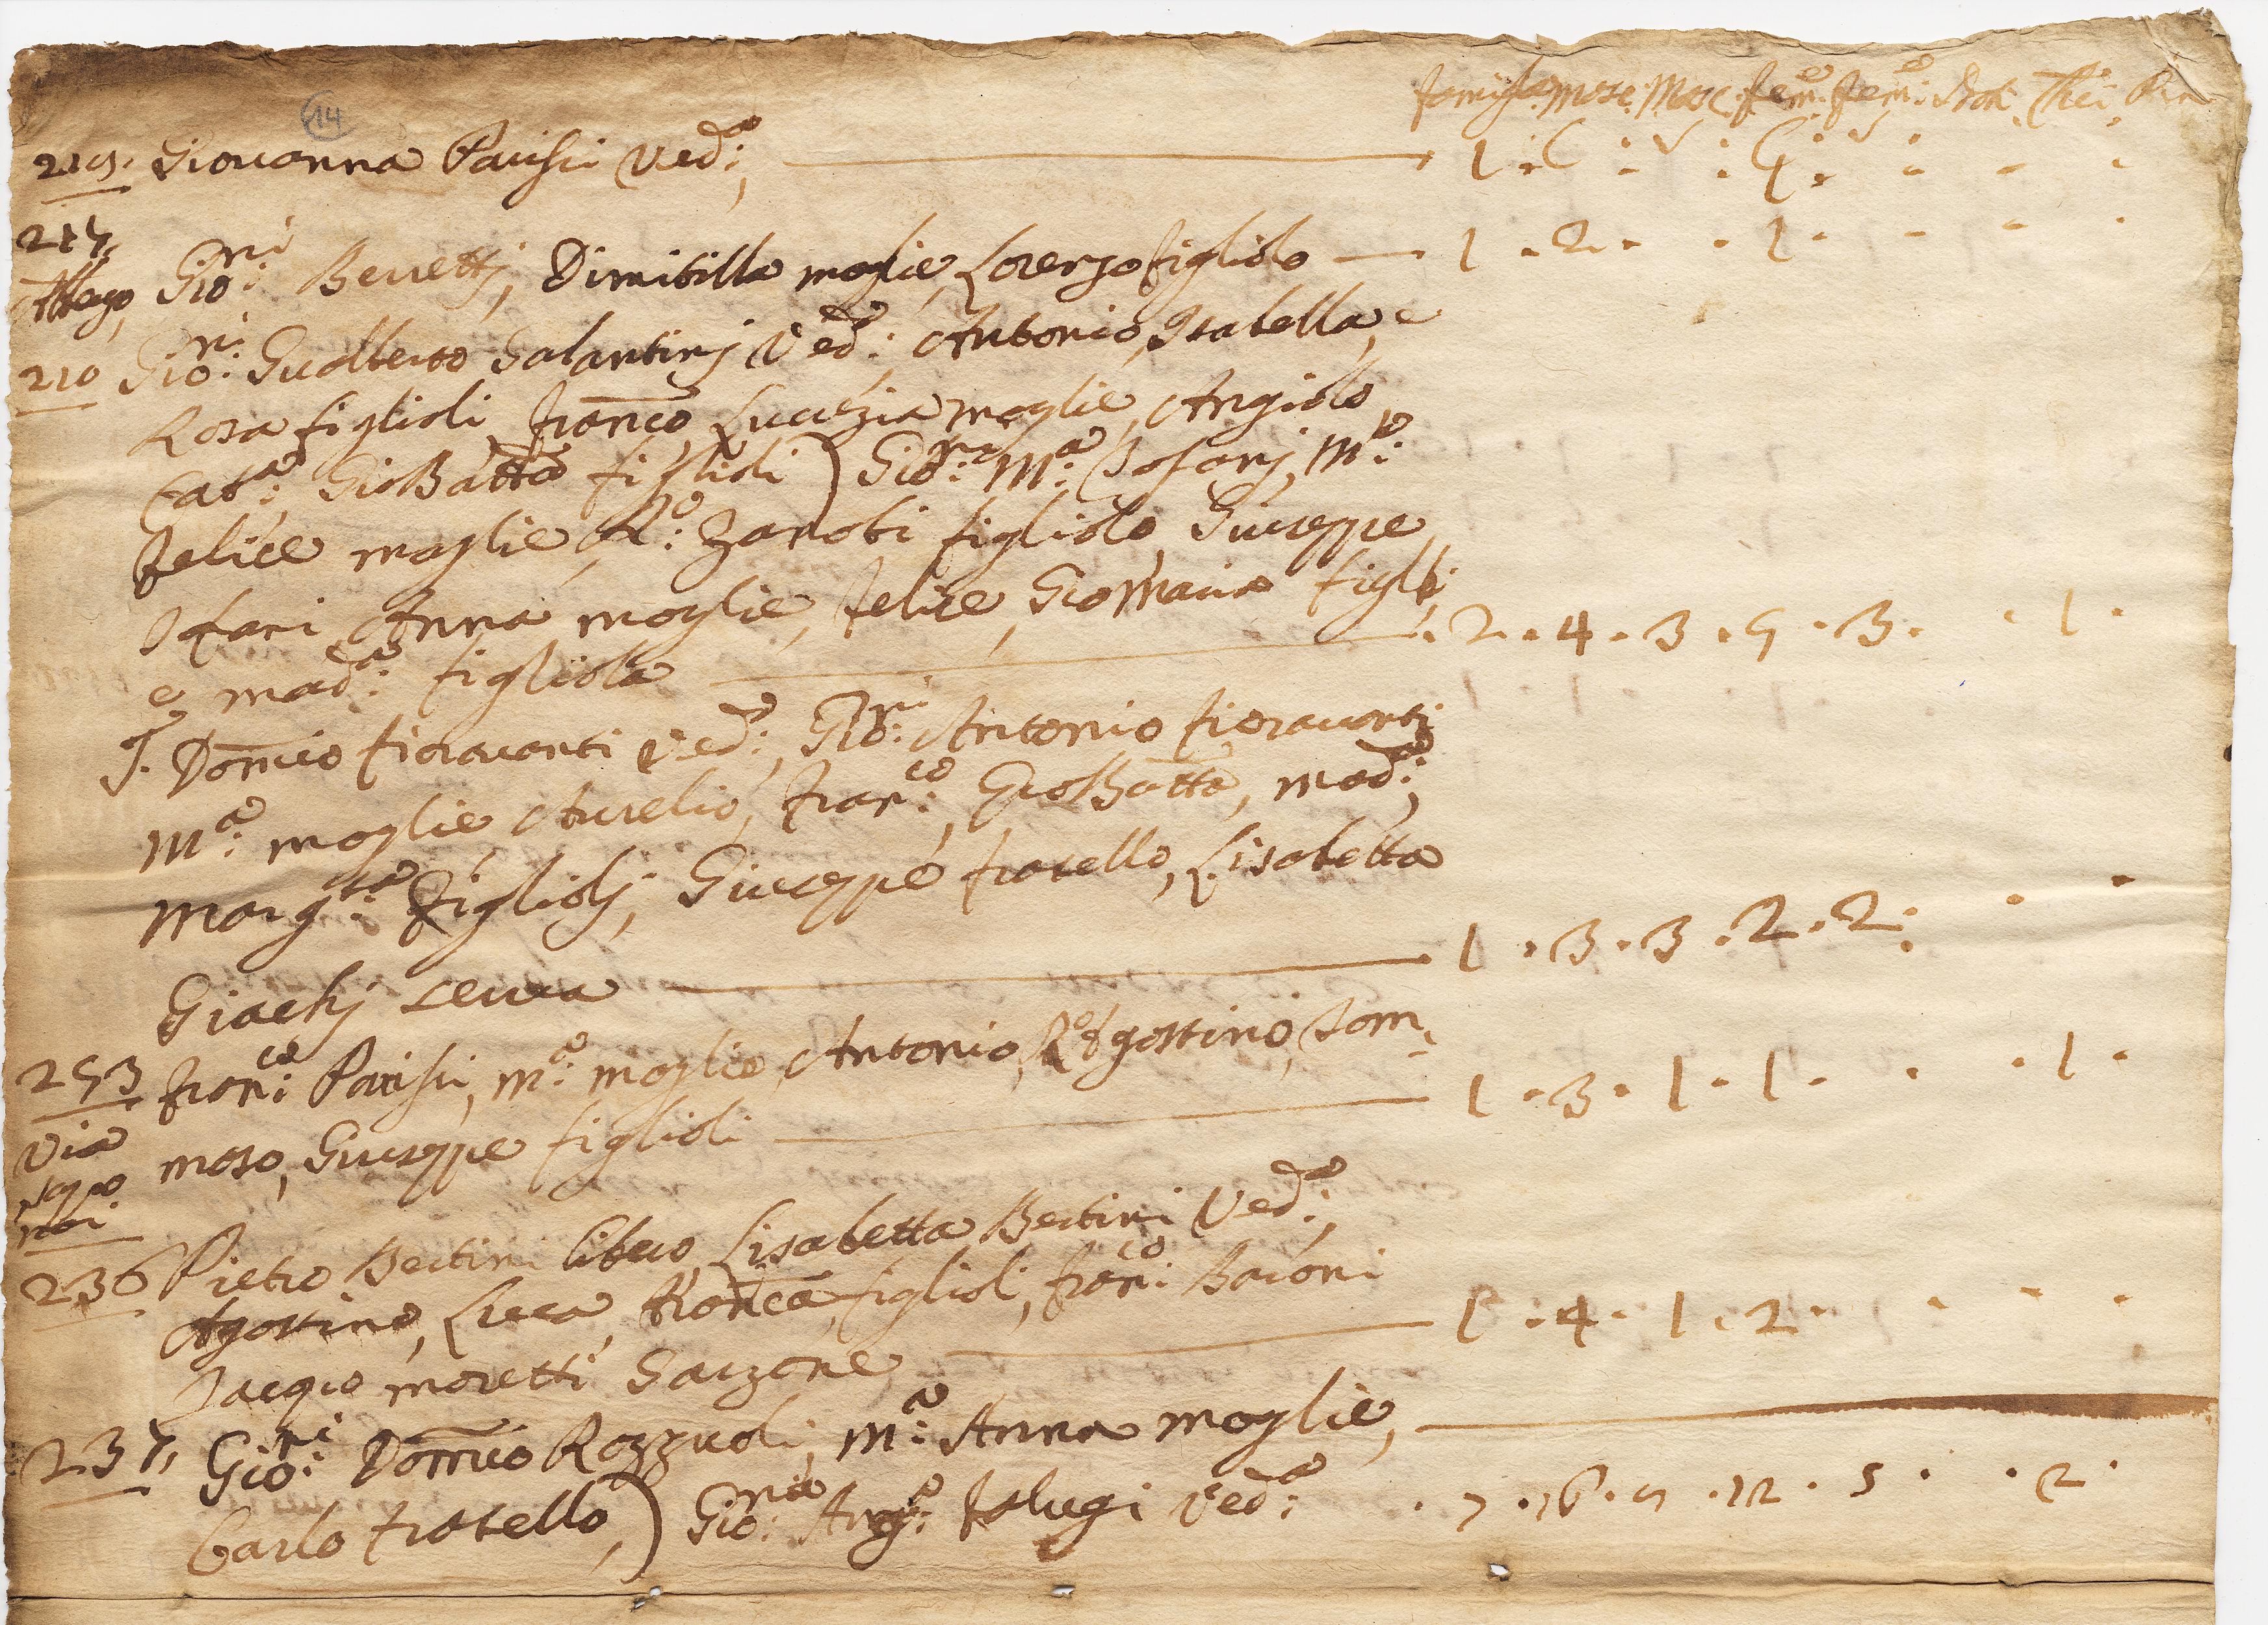 14
Famiglie Masc: Masc: Fem:e Fem:e
219. Giovanna Parisii Ved:a, 1
217. Gio:ni Berretti, Dimitilla moglie, Lorenzo figliolo 1 . 2 . . 1 .
210 Gio:ni Gualberto Galantinj Ved:o Antonio, Isabella, e
Rosa figlioli, Franco, Lucrezia moglie, Angiolo,
Cat:a, GioBatta figlioli ) Gio:ni M:a M:a
Felice moglie, Zanobi figliolo, Giuseppe
Anna moglie, Felice, GioMaria figli
e mad:a figliola . 2 . 4 . 3 . 5 . 3 . . 1 .
Domco Fioravanti Ved:o, Gio:ni Antonio Fioravanti
M:a moglie Aurelio, Fran:co, GioBatta, Mad:a,
Marg:ta figliolj, Giuseppe fratello, Lisabetta
Giachj serva 1 . 3 . 3 . 2 . 2 :
253 Fran:co Parisii, M:a moglie, Antonio, Agostino, Tom-
Via
maso, Giuseppe figlioli 1 . 3 . 1 . 1 . . . 1 .
236 Pietro Bertini libero, Lisabetta Bertini Ved:a,
Agostino, Luca, Franca figlioli, Fran:co Baroni
Jacopo Moretti Garzone 1 . 4 . 1 . 2 .
237, Gio:ni Domco Rozzuoli, M:a Anna moglie,
Carlo fratello, ) Gio:na Ang:a Falugi Ved:a . 7 . 16 . 9 . 12 . 5 . . 2 .